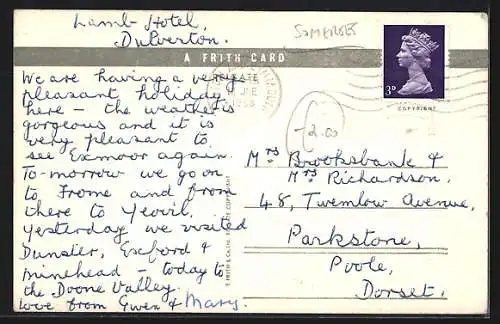 Lamb Hotel,
Dulverton.
SOMERSET
A FRITH CARD
3D
COPYRIGHT
-2.00
We are having a very
pleasant holiday
here - the weather is
gorgeous and it is
very pleasant to
see Exmoor again.
To-morrow we go on
to Frome and from
there to Yeovil.
Yesterday we visited
Dunster, Exford &
Minehead - today to
the Doone Valley.
Love from Gwen & Mary.
Mrs Brooksbank &
Mrs Richardson,
48, Twemlow Avenue,
Parkstone,
Poole,
Dorset.